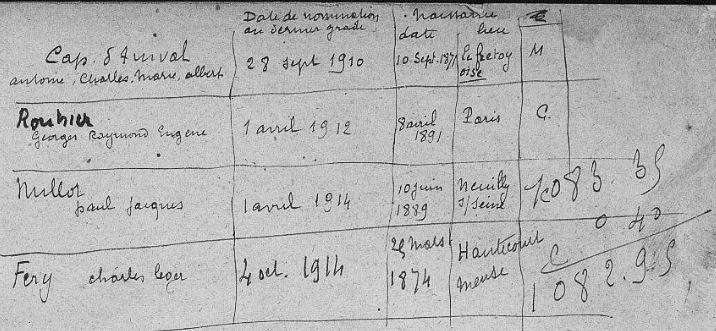 Date de nomination
au dernier grade
naissance
date lieu
Cap. d'Amval
antoine, Charles. Marie, albert
28 sept 1910
10 Sept.
Le fretoy
oise
M
Rouhier
Georges Raymond Eugène
1 avril 1912
8 avril
1891
Paris
C.
paul Jacques
1 avril 1914
10 juin
1889
Neuilly
s/Seine
1083.35
0 40
1082.95
Fery charles leger
4 oct. 1914
25 mars
1874
Hauticourt
meuse